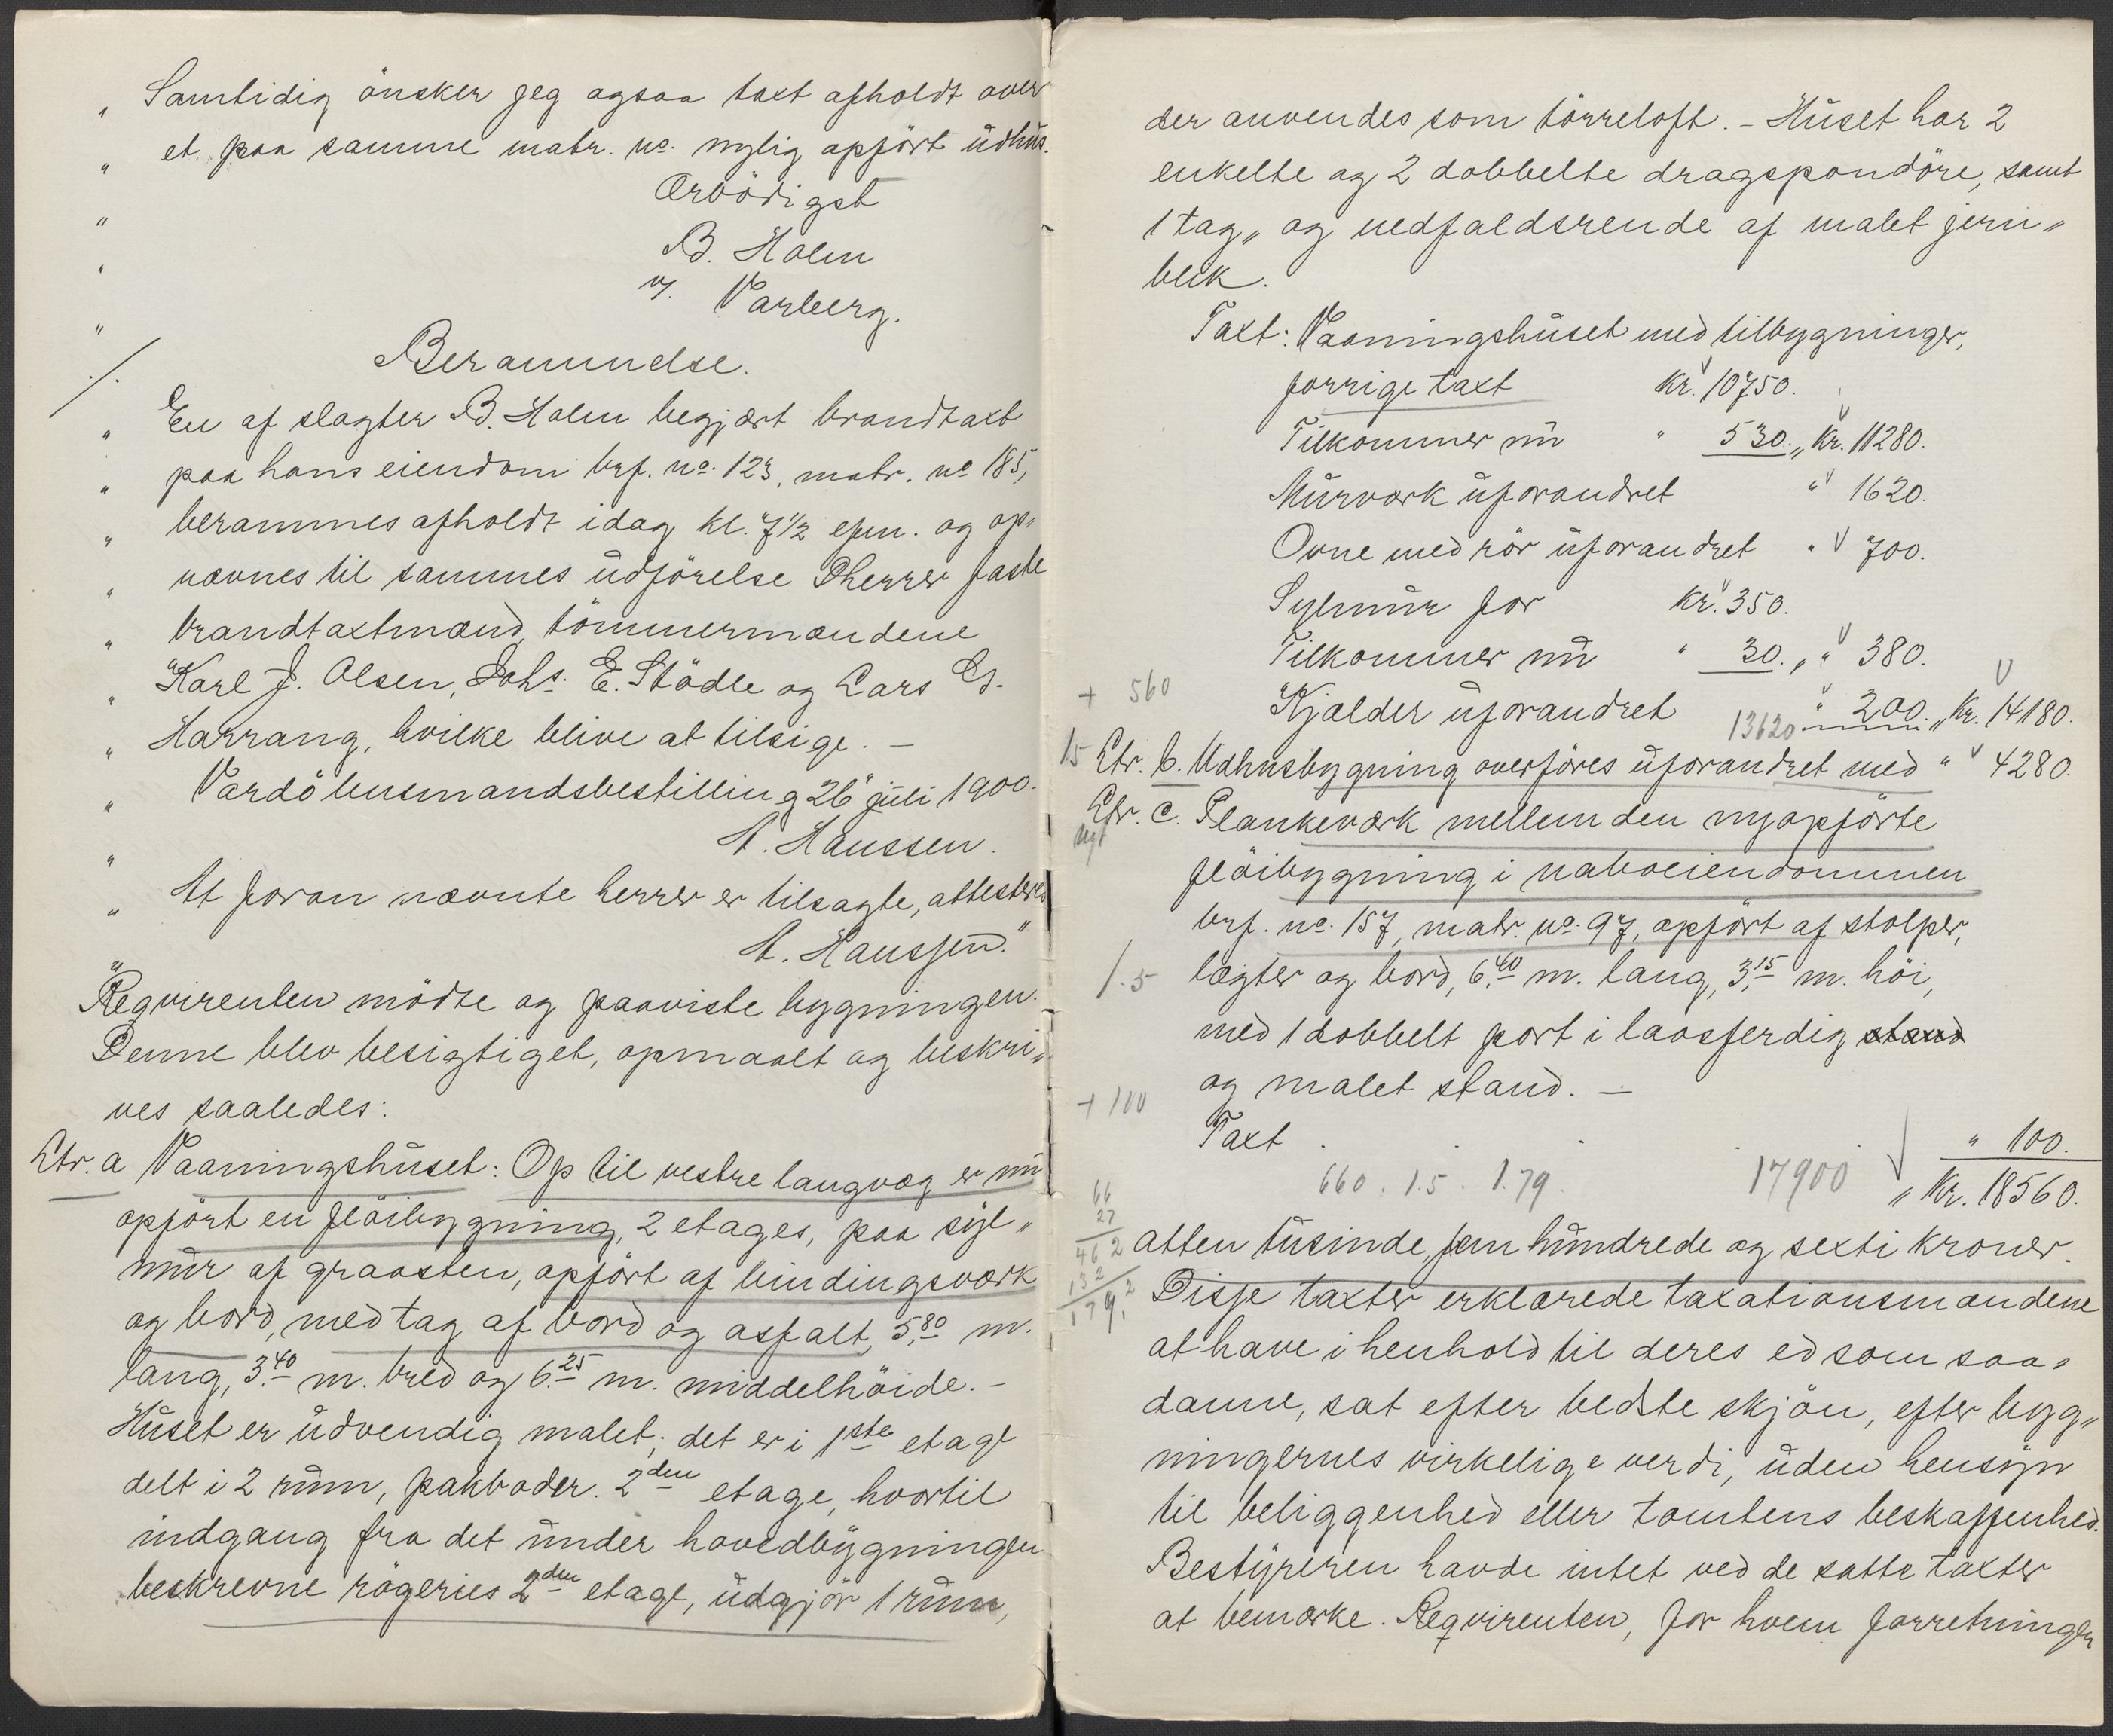 „ Samtidig önsker jeg ogsaa taxt afholdt over
„ et paa samme matr. no. nylig opfört udhus.
„ Ærbödigst
„ B. Holm
v/. Varberg.
„
./. Berammelse.
„ En af slagter B. Holm begjært brandtaxt
„ paa hans eiendom brf. no. 123, matr. no 185,
„ berammes afholdt idag kl. 7 1/2 efm. og op„
„ nævnes til sammes udförelse Dherrer faste
„ brandtaxtmænd, tömmermændene
„ Karl J. Olsen, Johs. E. Stödle og Lars Es.
„ Harrang, hvilke blive at tilsige. —
„ Vardö lensmandsbestilling 26 juli 1900.
„ A. Hanssen.
„ At foran nævnte herrer er tilsagte, attesteres
A. Hanssen."
Reqvirenten mödte og paaviste bygningen.
Denne blev besigtiget, opmaalt og beskri„
ves saaledes:
Ltr. a Vaaningshuset: Op til vestre langvæg er nu
opfört en flöibygning, 2 etages, paa syl„
mur af graasten, opfört af bindingsværk
og bord, med tag af bord og asfalt, 5,80 m.
lang, 3,40 m. bred og 6,25 m. middelhöide. —
Huset er udvendig malet; det er i 1ste etage
delt i 2 rum, pakboder. 2den etage, hvortil
indgang fra det under hovedbygningen
beskrevne rögeries 2den etage, udgjör 1 rum,
der anvendes som törreloft. — Huset har 2
enkelte og 2 dobbelte dragspondöre, samt
1 tag„ og nedfaldsrende af malet jern„
blik.
Taxt: Vaaningshuset med tilbygninger,
forrige taxt Kr. 10750.
Tilkommer nu " 530. „ Kr. 11280.
Murværk uforandret " 1620.
Ovne med rör uforandret " 700.
Sylmur för Kr. 350.
Tilkommer nu " 30. „ " 380.
+ 560 Kjælder uforandret 13620 " 200. „ Kr. 14180.
15 Ltr. b. Udhusbygning overföres uforandret med " 4280.
Ltr. c. Plankeværk mellem den nyopförte
nyt flöibygning i naboeiendommen
brf. no. 157, matr. no. 97, opfört af stolper,
1.5 lægter og bord, 6,40 m. lang, 3,15 m. höi,
med 1 dobbelt port i laasferdig stand
og malet stand. —
+ 100
Taxt . . . . . " 100.
660 . 1.5 . 1.79. 17900 „ Kr. 18560.
66
27
462
132
179,2
atten tusinde, fem hundrede og sexti kroner.
Disse taxter erklærede taxationsmændene
at have i henhold til deres ed som saa„
danne, sat efter bedste skjön, efter byg„
ningernes virkelige verdi, uden hensyn
til beliggenhed eller tomtens beskaffenhed.
Bestyreren havde intet ved de satte taxter
at bemærke. Reqvirenten, for hvem forretningen